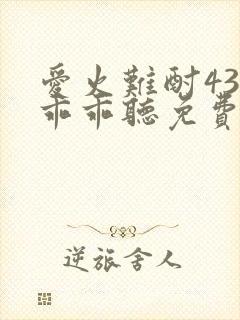 愛火難酎43
乖乖聽免費
逆旅舍人